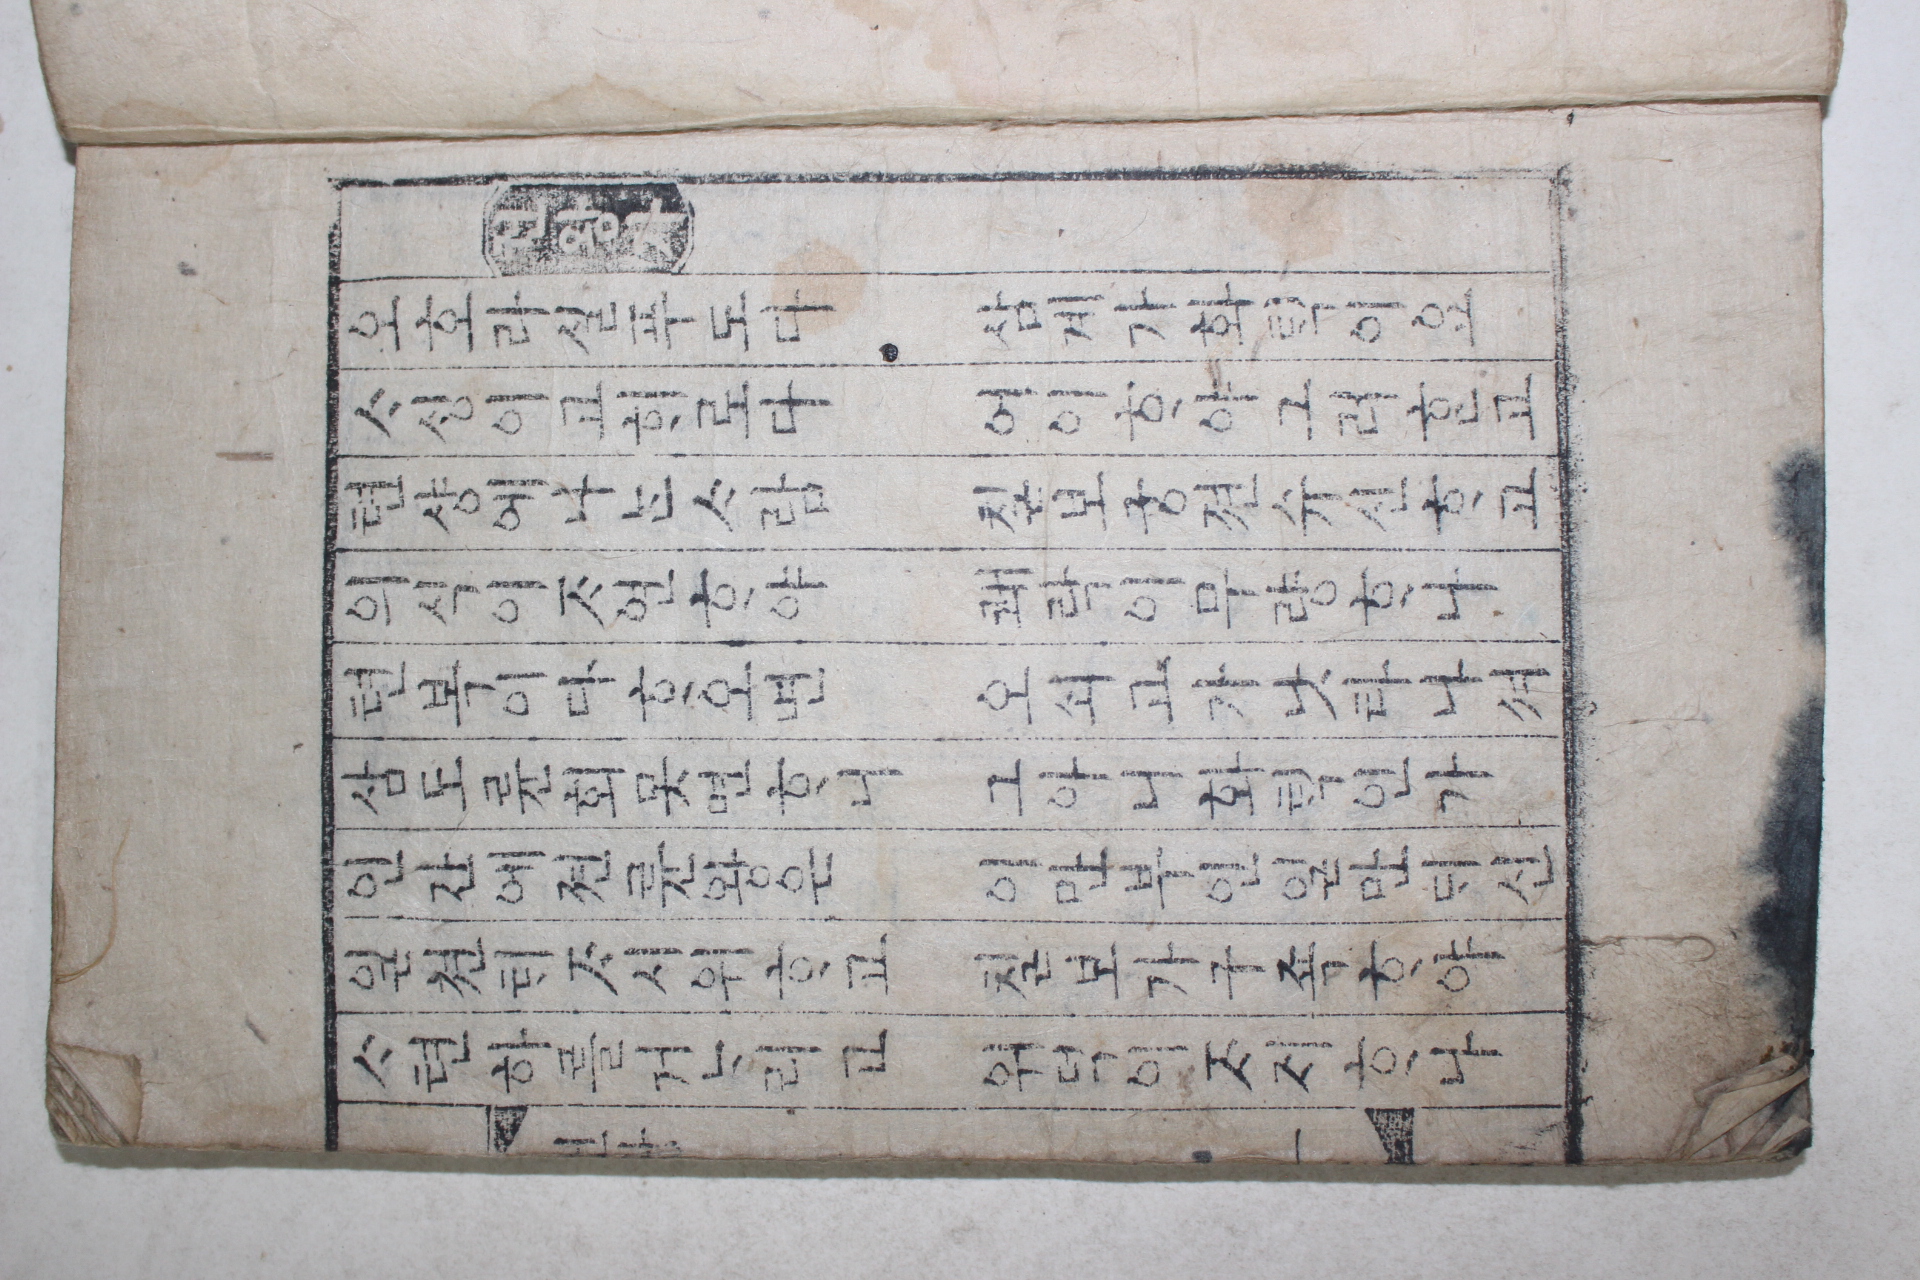 젼왕ᄉᆞ
오호라실푸도다 삼계가화ᄐᆡᆨ이요
ᄉᆞᄉᆡᆼ이고ᄒᆡ로다 어이ᄒᆞ야그러ᄒᆞᆫ고
텬샹에나ᄂᆞᆫᄉᆞ람 칠보궁젼슈신ᄒᆞ고
의식이ᄌᆞ연ᄒᆞ야 쾌락이무량ᄒᆞ나
텬복이다ᄒᆞ오면 오쇠고가낫타나셔
삼도륜회못면ᄒᆞ니 그아니화ᄐᆡᆨ인가
인간에젼륜왕은 이만부인일만ᄃᆡ신
일쳔ᄐᆡᄌᆞ시위ᄒᆞ고 칠보가구죡ᄒᆞ야
ᄉᆞ텬하를거ᄂᆞ리고 위덕이ᄌᆞᄌᆡᄒᆞ나
一